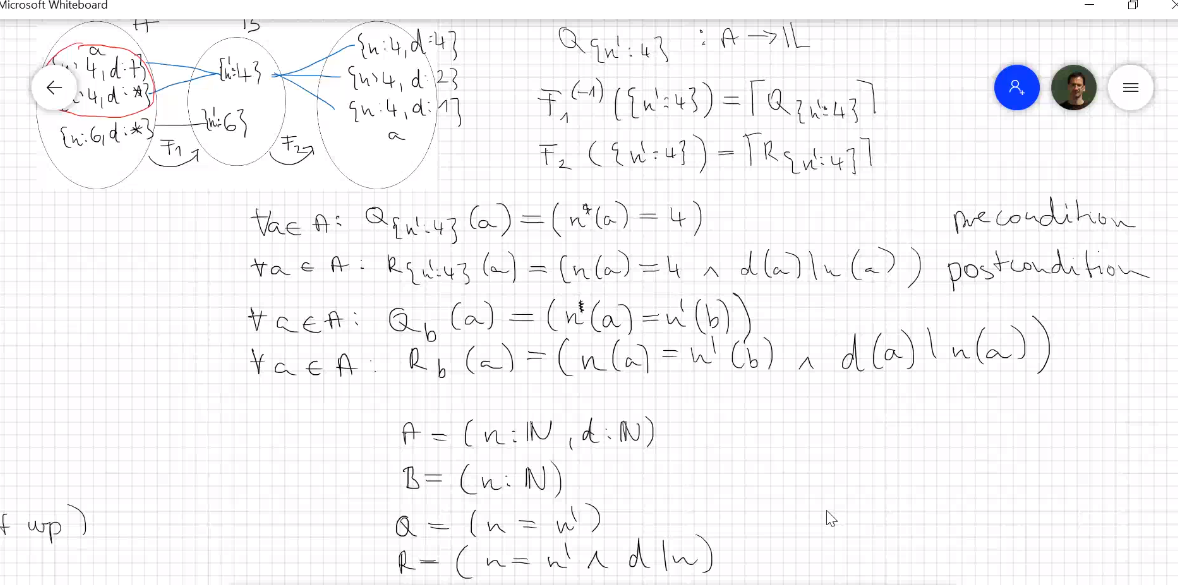 Microsoft Whiteboard
A B
a {n:4, d:4}
:4, d:7} {n':4} {n:4, d:2}
:4, d:*} {n:4, d:1}
{n:6, d:*} {n':6} a
F₁ F₂
Q_{n':4} : A → 𝕃
F₁⁽⁻¹⁾ ({n':4}) = ⌈Q_{n':4}⌉
F₂ ({n':4}) = ⌈R_{n':4}⌉
∀a∈A: Q_{n':4}(a) = (n*(a) = 4) precondition
∀a∈A: R_{n':4}(a) = (n(a) = 4 ∧ d(a)|n(a)) postcondition
∀a∈A: Q_b(a) = (n*(a) = n'(b))
∀a∈A: R_b(a) = (n(a) = n'(b) ∧ d(a)|n(a))
A = (n:ℕ, d:ℕ)
B = (n:ℕ)
f wp) Q = (n = n')
R = (n = n' ∧ d|n)